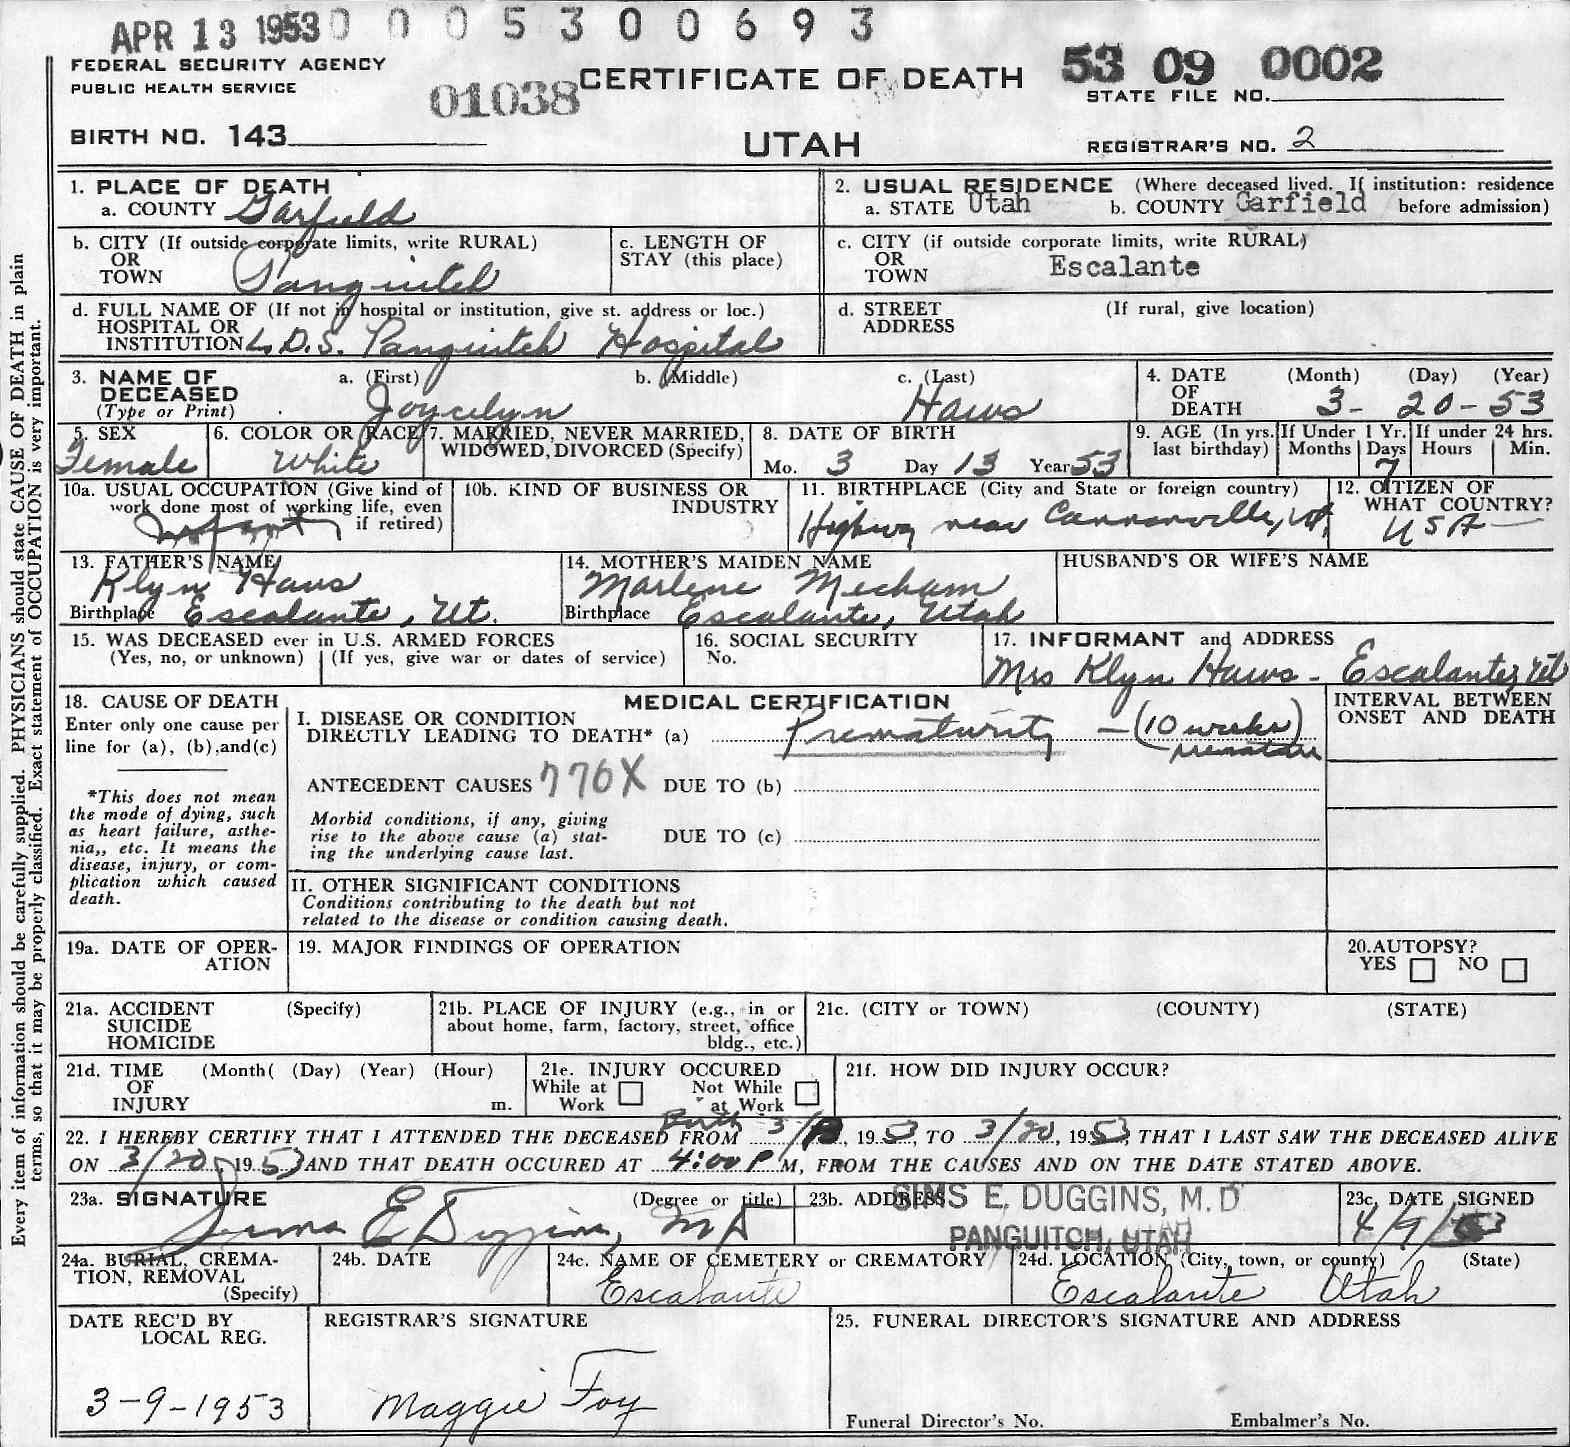 APR 13 1953 0 0 0 5 3 0 0 6 9 3
FEDERAL SECURITY AGENCY
PUBLIC HEALTH SERVICE
01038
CERTIFICATE OF DEATH
53 09 0002
STATE FILE NO.
BIRTH NO. 143
UTAH
REGISTRAR'S NO. 2
Every item of information should be carefully supplied. PHYSICIANS should state CAUSE OF DEATH in plain
terms, so that it may be properly classified. Exact statement of OCCUPATION is very important.
1. PLACE OF DEATH
a. COUNTY Garfield
2. USUAL RESIDENCE (Where deceased lived. If institution: residence
a. STATE Utah b. COUNTY Garfield before admission)
b. CITY (If outside corporate limits, write RURAL)
OR
TOWN Panguitch
c. LENGTH OF
STAY (this place)
c. CITY (if outside corporate limits, write RURAL)
OR
TOWN Escalante
d. FULL NAME OF (If not in hospital or institution, give st. address or loc.)
HOSPITAL OR
INSTITUTION L.D.S. Panguitch Hospital
d. STREET (If rural, give location)
ADDRESS
3. NAME OF DECEASED
(Type or Print)
a. (First) b. (Middle) c. (Last)
Joycelyn Haws
4. DATE OF DEATH
(Month) (Day) (Year)
3- 20-53
5. SEX
Female
6. COLOR OR RACE
White
7. MARRIED, NEVER MARRIED,
WIDOWED, DIVORCED (Specify)
8. DATE OF BIRTH
Mo. 3 Day 13 Year 53
9. AGE (In yrs. last birthday)
If Under 1 Yr.
Months Days
7
If under 24 hrs.
Hours Min.
10a. USUAL OCCUPATION (Give kind of
work done most of working life, even
if retired)
Infant
10b. KIND OF BUSINESS OR
INDUSTRY
11. BIRTHPLACE (City and State or foreign country)
Highway near Cannonville, Ut.
12. CITIZEN OF
WHAT COUNTRY?
USA
13. FATHER'S NAME
Klyn Haws
Birthplace Escalante, Ut.
14. MOTHER'S MAIDEN NAME
Marlene Mecham
Birthplace Escalante, Utah
HUSBAND'S OR WIFE'S NAME
15. WAS DECEASED ever in U.S. ARMED FORCES
(Yes, no, or unknown) (If yes, give war or dates of service)
16. SOCIAL SECURITY
No.
17. INFORMANT and ADDRESS
Mrs Klyn Haws - Escalante, Ut
18. CAUSE OF DEATH
Enter only one cause per
line for (a), (b), and (c)
*This does not mean
the mode of dying, such
as heart failure, asthe-
nia,, etc. It means the
disease, injury, or com-
plication which caused
death.
MEDICAL CERTIFICATION
INTERVAL BETWEEN
ONSET AND DEATH
I. DISEASE OR CONDITION
DIRECTLY LEADING TO DEATH* (a) Prematurity - (10 weeks)
premature
ANTECEDENT CAUSES 776X DUE TO (b)
Morbid conditions, if any, giving
rise to the above cause (a) stat-
ing the underlying cause last.
DUE TO (c)
II. OTHER SIGNIFICANT CONDITIONS
Conditions contributing to the death but not
related to the disease or condition causing death.
19a. DATE OF OPER-
ATION
19. MAJOR FINDINGS OF OPERATION
20. AUTOPSY?
YES NO
21a. ACCIDENT (Specify)
SUICIDE
HOMICIDE
21b. PLACE OF INJURY (e.g., in or
about home, farm, factory, street, office
bldg., etc.)
21c. (CITY or TOWN) (COUNTY) (STATE)
21d. TIME (Month( (Day) (Year) (Hour)
OF
INJURY m.
21e. INJURY OCCURED
While at Work Not While at Work
21f. HOW DID INJURY OCCUR?
Birth
22. I HEREBY CERTIFY THAT I ATTENDED THE DECEASED FROM 3/13, 1953, TO 3/20, 1953, THAT I LAST SAW THE DECEASED ALIVE
ON 3/20, 1953 AND THAT DEATH OCCURED AT 4:00 P M, FROM THE CAUSES AND ON THE DATE STATED ABOVE.
23a. SIGNATURE (Degree or title)
Sims E Duggins, MD
23b. ADDRESS
SIMS E. DUGGINS, M.D
PANGUITCH, UTAH
23c. DATE SIGNED
4/9/53
24a. BURIAL, CREMA-
TION, REMOVAL
(Specify)
24b. DATE
24c. NAME OF CEMETERY or CREMATORY
Escalante
24d. LOCATION (City, town, or county) (State)
Escalante Utah
DATE REC'D BY
LOCAL REG.
3-9-1953
REGISTRAR'S SIGNATURE
Maggie Foy
25. FUNERAL DIRECTOR'S SIGNATURE AND ADDRESS
Funeral Director's No. Embalmer's No.